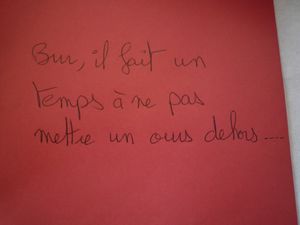 Brr, il fait un
temps à ne pas
mettre un ours dehors....